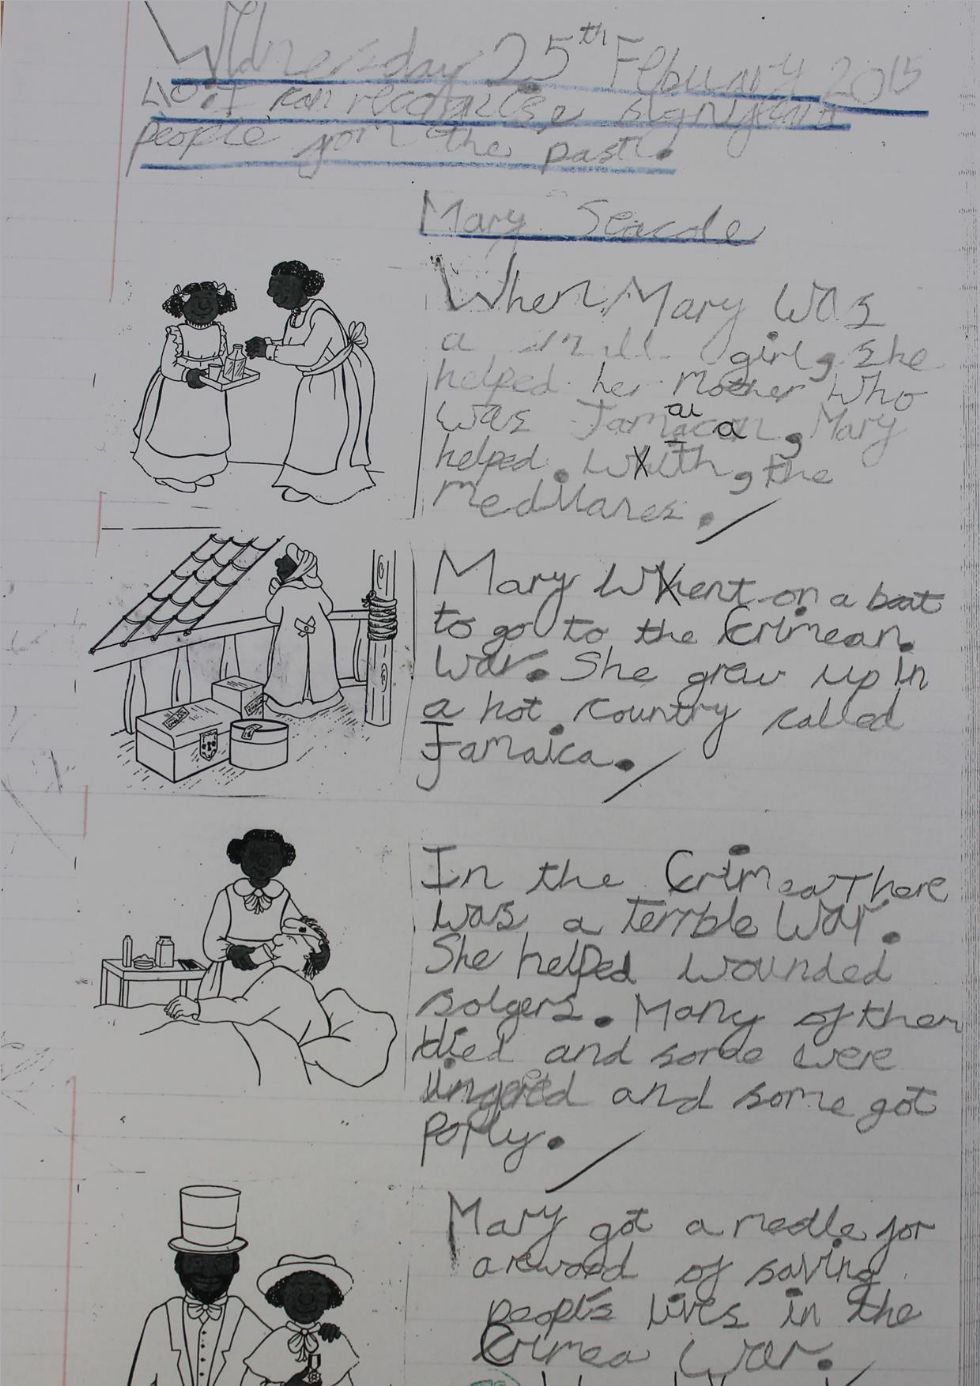 Wednesday 25th Febuary 2015
LO: I can recognise significant
people from the past.
Mary Seacole
When Mary was
a small girl, she
helped her mother who
was Jamaican, Mary
helped. With, the
Medilanes.
Mary Went on a boat
to go to the Crimean.
War. She grew up in
a hot country called
Jamaica.
In the Crimea There
was a terrble War.
She helped wounded
solgers. Many of them
died and some were
and some got
porly.
Mary got a medle for
arewood of saving
people's lives in the
Crimea War.